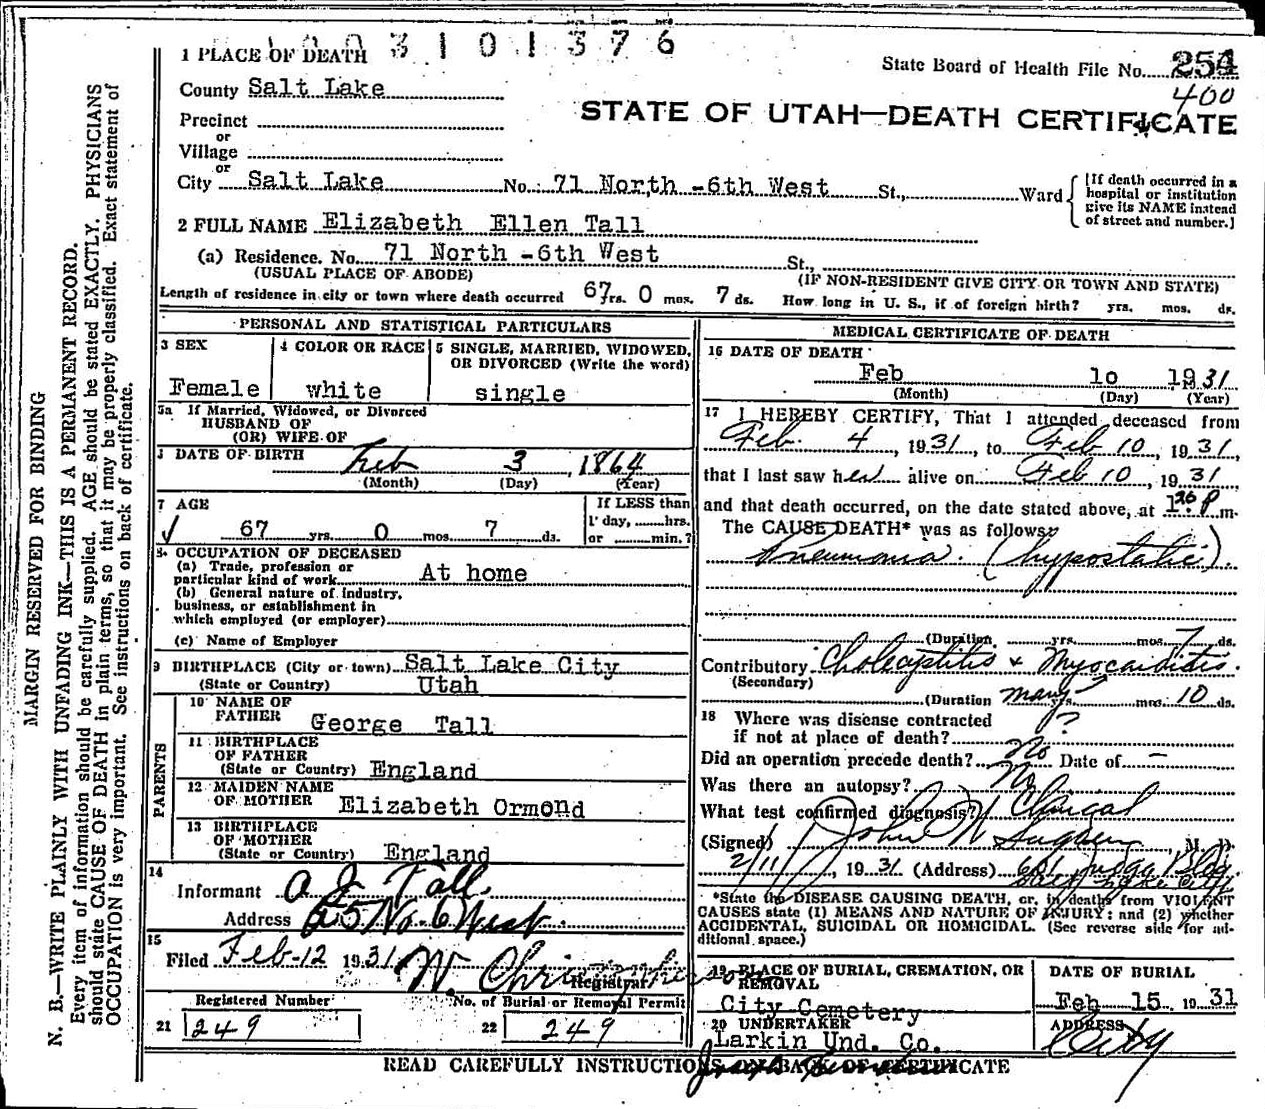 3101376
1 PLACE OF DEATH
State Board of Health File No. 254
400
County Salt Lake
STATE OF UTAH—DEATH CERTIFICATE
Precinct
or
Village
or
City Salt Lake No. 71 North -6th West St., Ward
[If death occurred in a hospital or institution give its NAME instead of street and number.]
2 FULL NAME Elizabeth Ellen Tall
(a) Residence. No. 71 North -6th West St.,
(USUAL PLACE OF ABODE) (IF NON-RESIDENT GIVE CITY OR TOWN AND STATE)
Length of residence in city or town where death occurred 67 yrs. 0 mos. 7 ds. How long in U. S., if of foreign birth? yrs. mos. ds.
PERSONAL AND STATISTICAL PARTICULARS
3 SEX
Female
4 COLOR OR RACE
white
5 SINGLE, MARRIED, WIDOWED,
OR DIVORCED (Write the word)
single
5a If Married, Widowed, or Divorced
HUSBAND OF
(OR) WIFE OF
DATE OF BIRTH Feb 3, 1864
(Month) (Day) (Year)
7 AGE
67 yrs. 0 mos. 7 ds.
If LESS than
1 day, hrs.
or min.?
8. OCCUPATION OF DECEASED
(a) Trade, profession or
particular kind of work At home
(b) General nature of industry,
business, or establishment in
which employed (or employer)
(c) Name of Employer
9 BIRTHPLACE (City or town) Salt Lake City
(State or Country) Utah
PARENTS
10 NAME OF
FATHER George Tall
11 BIRTHPLACE
OF FATHER
(State or Country) England
12 MAIDEN NAME
OF MOTHER Elizabeth Ormond
13 BIRTHPLACE
OF MOTHER
(State or Country) England
14
Informant A J Tall.
Address 25 No. 6 West.
15
Filed Feb-12 1931 W. Christopherson
Registrar
Registered Number
21 249
No. of Burial or Removal Permit
22 249
MEDICAL CERTIFICATE OF DEATH
16 DATE OF DEATH
Feb 10 1931
(Month) (Day) (Year)
17 I HEREBY CERTIFY, That I attended deceased from
Feb. 4, 1931, to Feb 10, 1931,
that I last saw her alive on Feb 10, 1931
and that death occurred, on the date stated above, at 1:20 P m.
The CAUSE DEATH* was as follows:
Pneumonia. (hypostatic).
(Duration yrs. mos. 7 ds.
Contributory Cholecystitis & Myocarditis.
(Secondary)
(Duration many yrs. mos. 10 ds.
18 Where was disease contracted
if not at place of death? ?
Did an operation precede death? No Date of —
Was there an autopsy? No
What test confirmed diagnosis? Clinical
(Signed) John N M. D.
2/11/, 1931 (Address) Bldg.
Salt Lake City
*State the DISEASE CAUSING DEATH, or, in deaths from VIOLENT
CAUSES state (1) MEANS AND NATURE OF INJURY: and (2) whether
ACCIDENTAL, SUICIDAL OR HOMICIDAL. (See reverse side for ad-
ditional space.)
19 PLACE OF BURIAL, CREMATION, OR
REMOVAL
City Cemetery
DATE OF BURIAL
Feb 15 1931
20 UNDERTAKER
Larkin Und. Co.
ADDRESS
City
READ CAREFULLY INSTRUCTIONS ON BACK OF CERTIFICATE
MARGIN RESERVED FOR BINDING
N. B.—WRITE PLAINLY WITH UNFADING INK—THIS IS A PERMANENT RECORD.
Every item of information should be carefully supplied. AGE should be stated EXACTLY. PHYSICIANS
should state CAUSE OF DEATH in plain terms, so that it may be properly classified. Exact statement of
OCCUPATION is very important. See instructions on back of certificate.